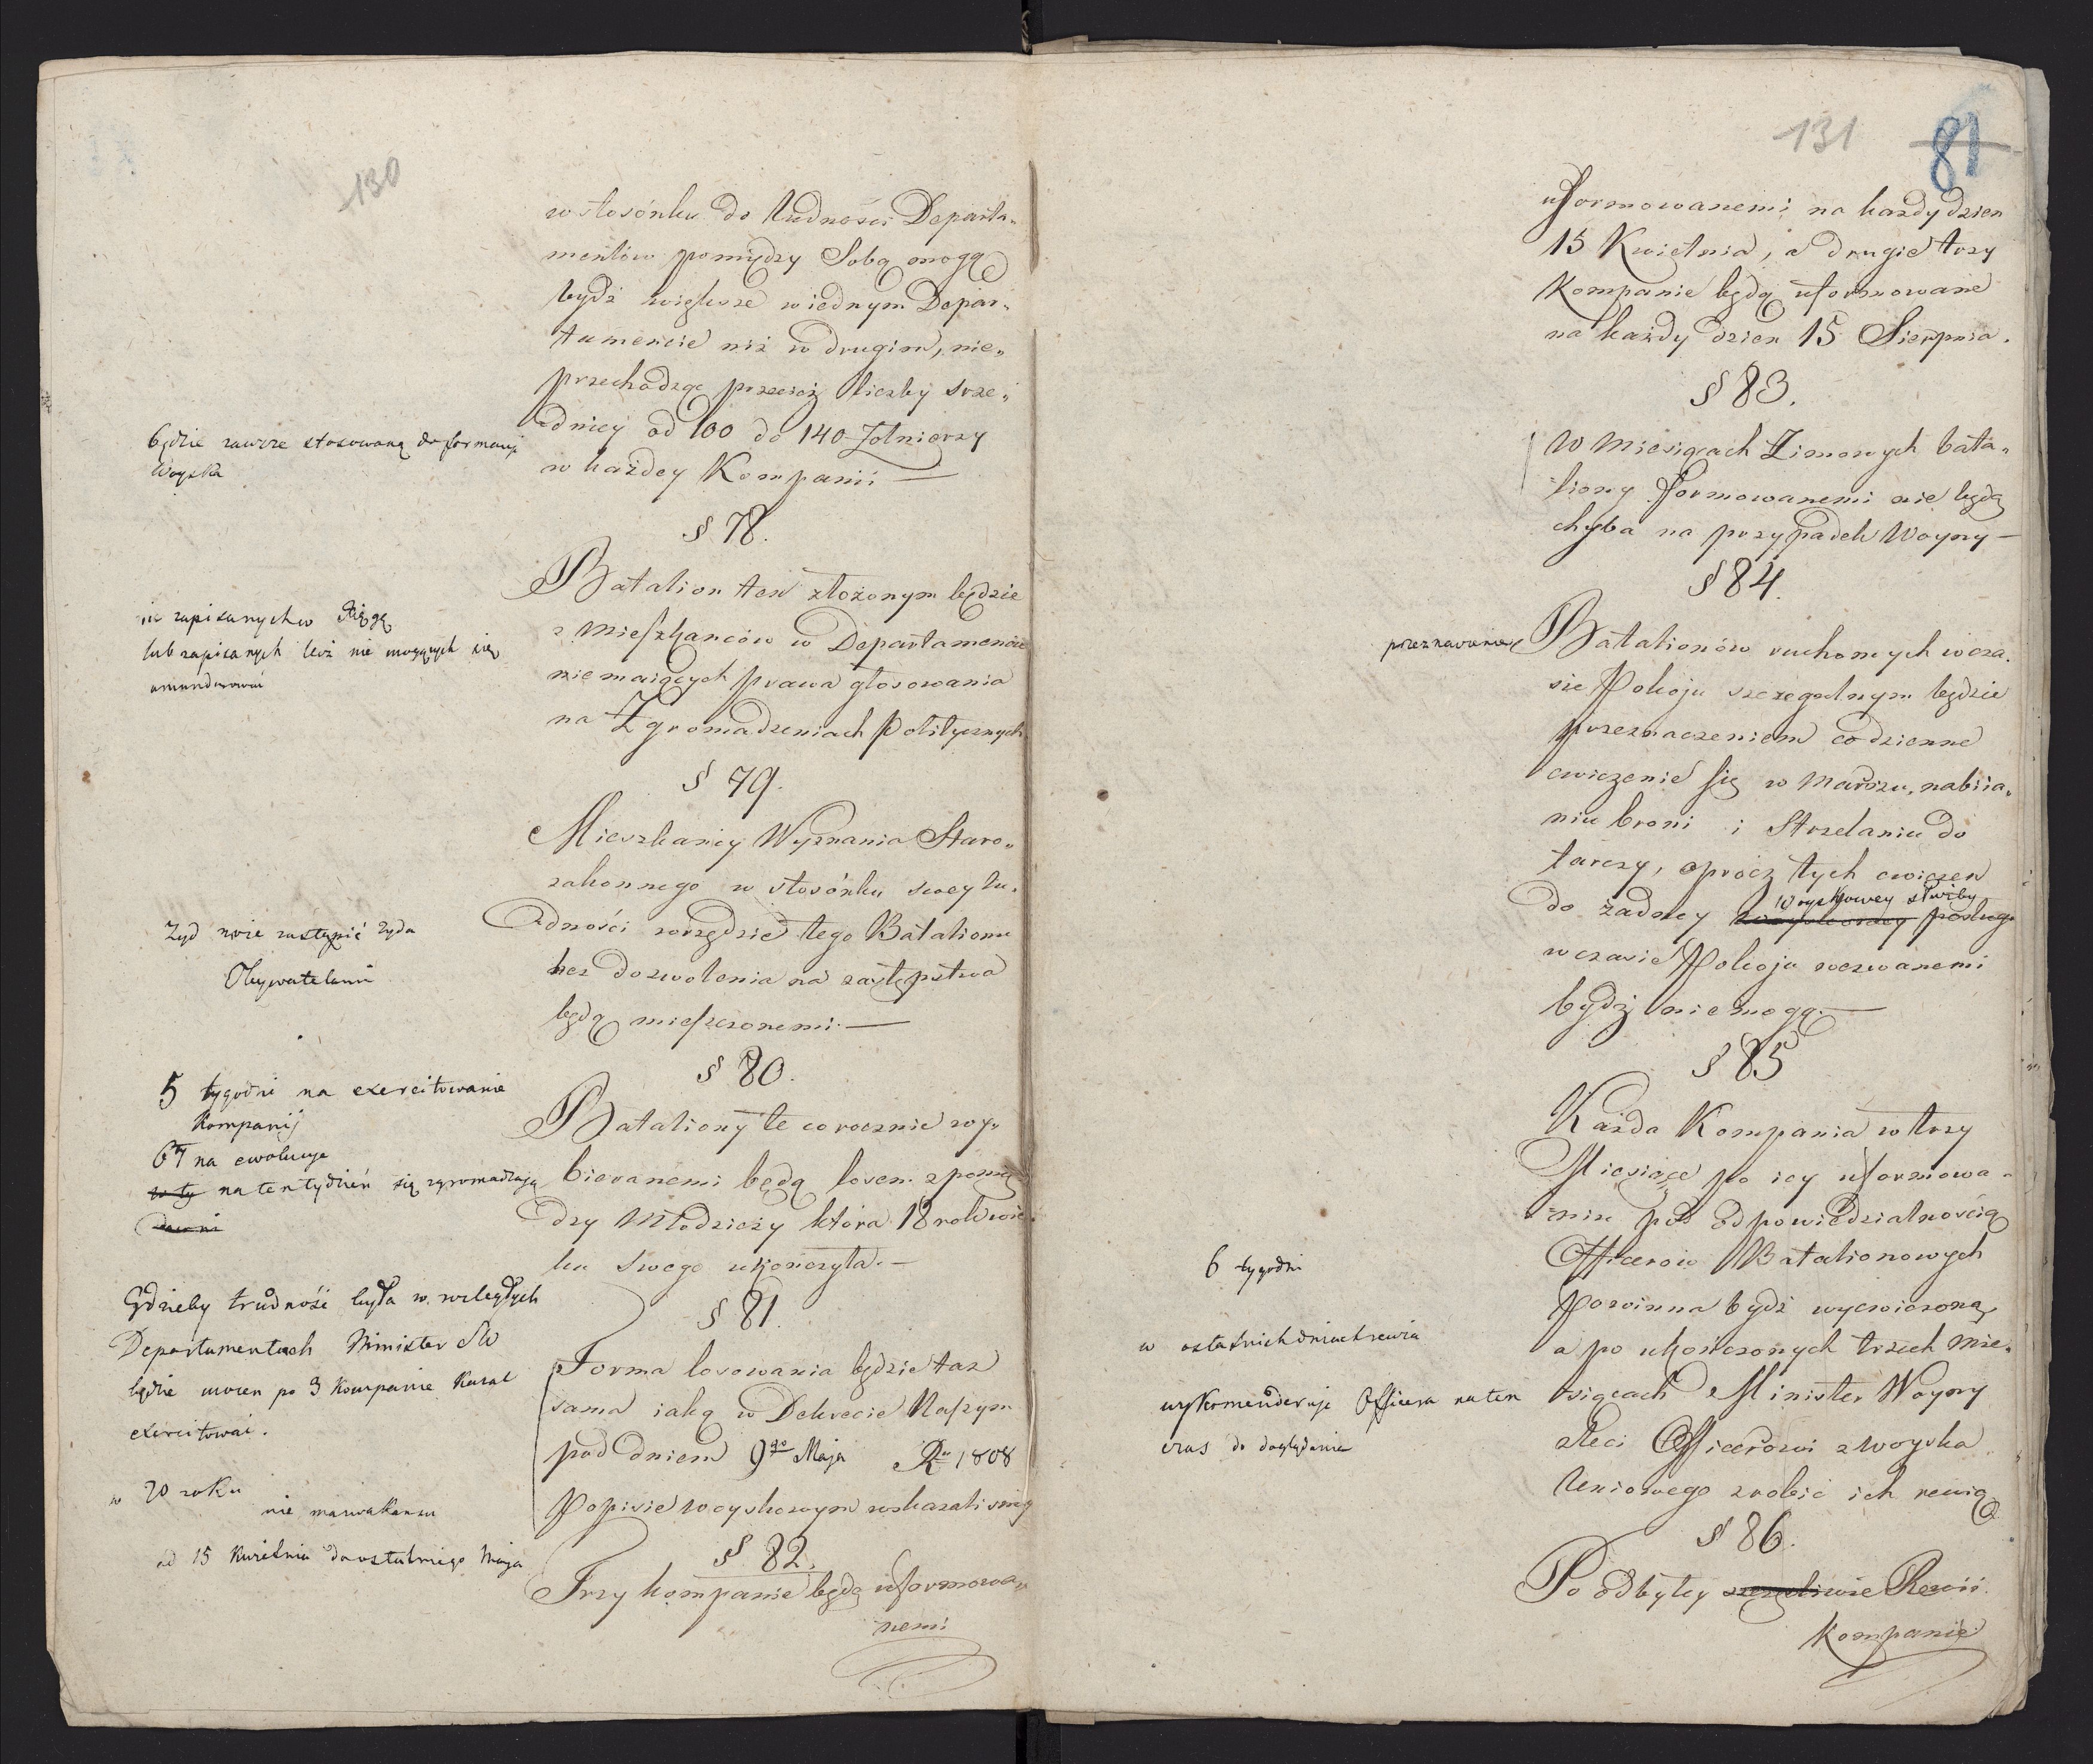 130
w stosónku do ludności Departa„
mentów pomiędzy Sobą mogą
bydź większe w iednym Depar„
tamencie niż w drugim, nie„
przechodząc przecież liczby srze„
dniey od 100 do 140 Żołnierzy
w każdey Kompanii —
będzie zawsze stosowaną do formacyi
Woyska
§ 78.
Batalion ten złożonym będzie
z Mieszkańców w Departamencie
niemaiących prawa głosowania
na Zgromadzeniach Politycznych
nie zapisanych w Xięgę
lub zapisanych lecz nie mogących się
umundurować
§ 79.
Mieszkańcy Wyznania Staro„
zakonnego w stosónku swey lu„
dności w rzędzie tego Batalionu
bez dozwolenia na zastępstwa
będą mieszczonemi. —
Żyd może zastąpić żyda
Obywatelami
§ 80.
Bataliony te corocznie wy„
bieranemi będą losem z pomię
dzy Młodzieży która 18 rok wie
ku swego ukończyła. —
5 tygodni na exercitowanie
Kompanij
6ty na ewolucye
w ty na ten tydzień się zgromadzają
§ 81.
Forma losowania będzie taz
sama iaką w Dekrecie Naszym
pod dniem 9go Maja Ru 1808
Popisie woyskowym wskazaliśmy
Gdzieby trudność była w rozległych
Departamentach Minister W
będzie mocen po 3 Kompanie kazać
exercitować.
w 20 roku
§ 82.
Trzy kompanie będą uformowa„
nemi
od 15 Kwietnia do ostatniego Maja
131
81
uformowanemi na każdy dzien
15 Kwietnia, a drugie trzy
Kompanie będą uformowane
na każdy dzien 15 Sierpnia.
§ 83.
W Miesiącach Zimowych bata„
liony formowanemi nie będą
chyba na przypadek Woyny —
§ 84.
Batalionów ruchomych w cza„
sie Pokoju szczegulnym będzie
przeznaczeniem codzienne
cwiczenie się w Marszu, nabiia„
niu broni i Strzelaniu do
tarczy, oprócz tych cwiczen
do żadney woyskowey służby posługi
w czasie Pokoju wezwanemi
bydź nie mogą. —
§ 85
Każda Kompania w trzy
Miesiące po iey uformowa„
niu pod odpowiedzialnością
Officerów Batalionowych
powinna bydź wycwiczoną,
a po ukończonych trzech Mie„
siącach Minister Woyny
zleci Officerowi z woyska
liniowego zrobić ich rewią
6 tygodni
w ostatnich dniach rewia
wykommenderuje Officera na ten
czas do doglądania
§ 86.
Po odbytey szczęśliwie Rewii
Kompanie